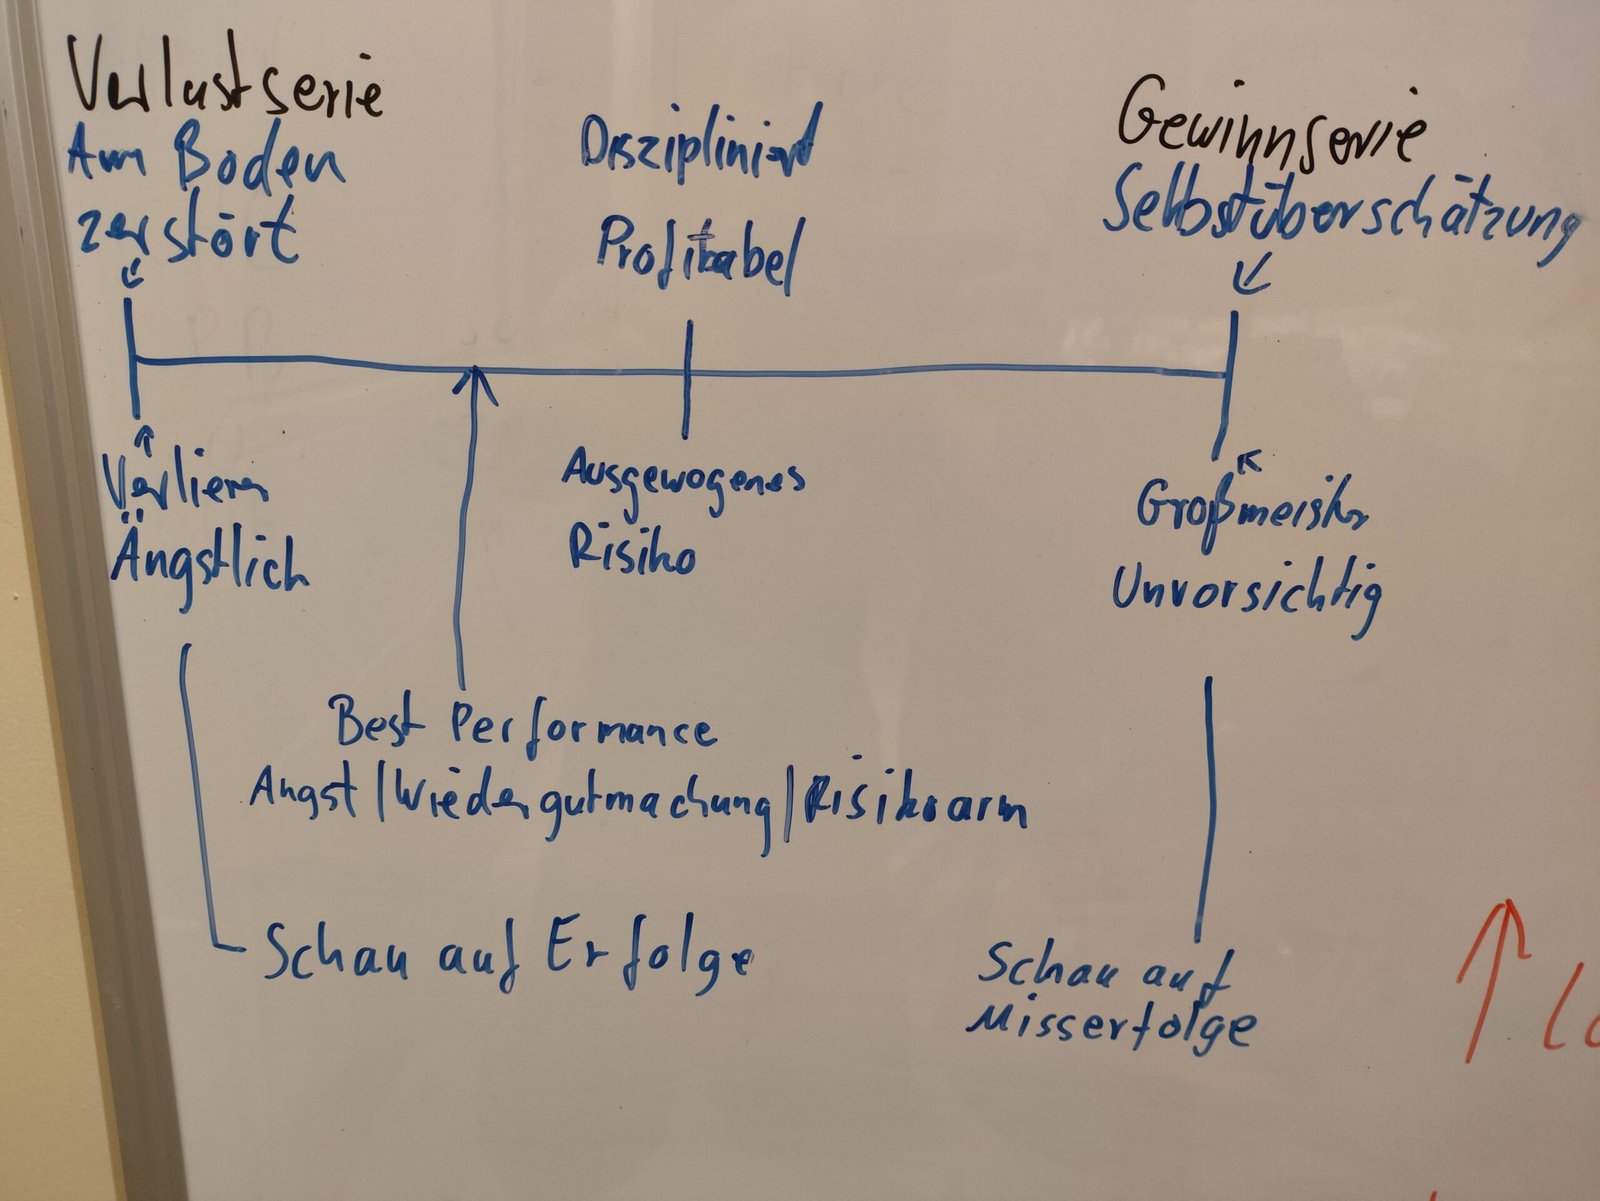 Verlustserie
Am Boden
zerstört
Diszipliniert
Profitabel
Gewinnserie
Selbstüberschätzung
Verlierer
Ängstlich
Ausgewogenes
Risiko
Großmeister
Unvorsichtig
Best Performance
Angst | Wiedergutmachung | Risikoarm
Schau auf Erfolge
Schau auf
Misserfolge